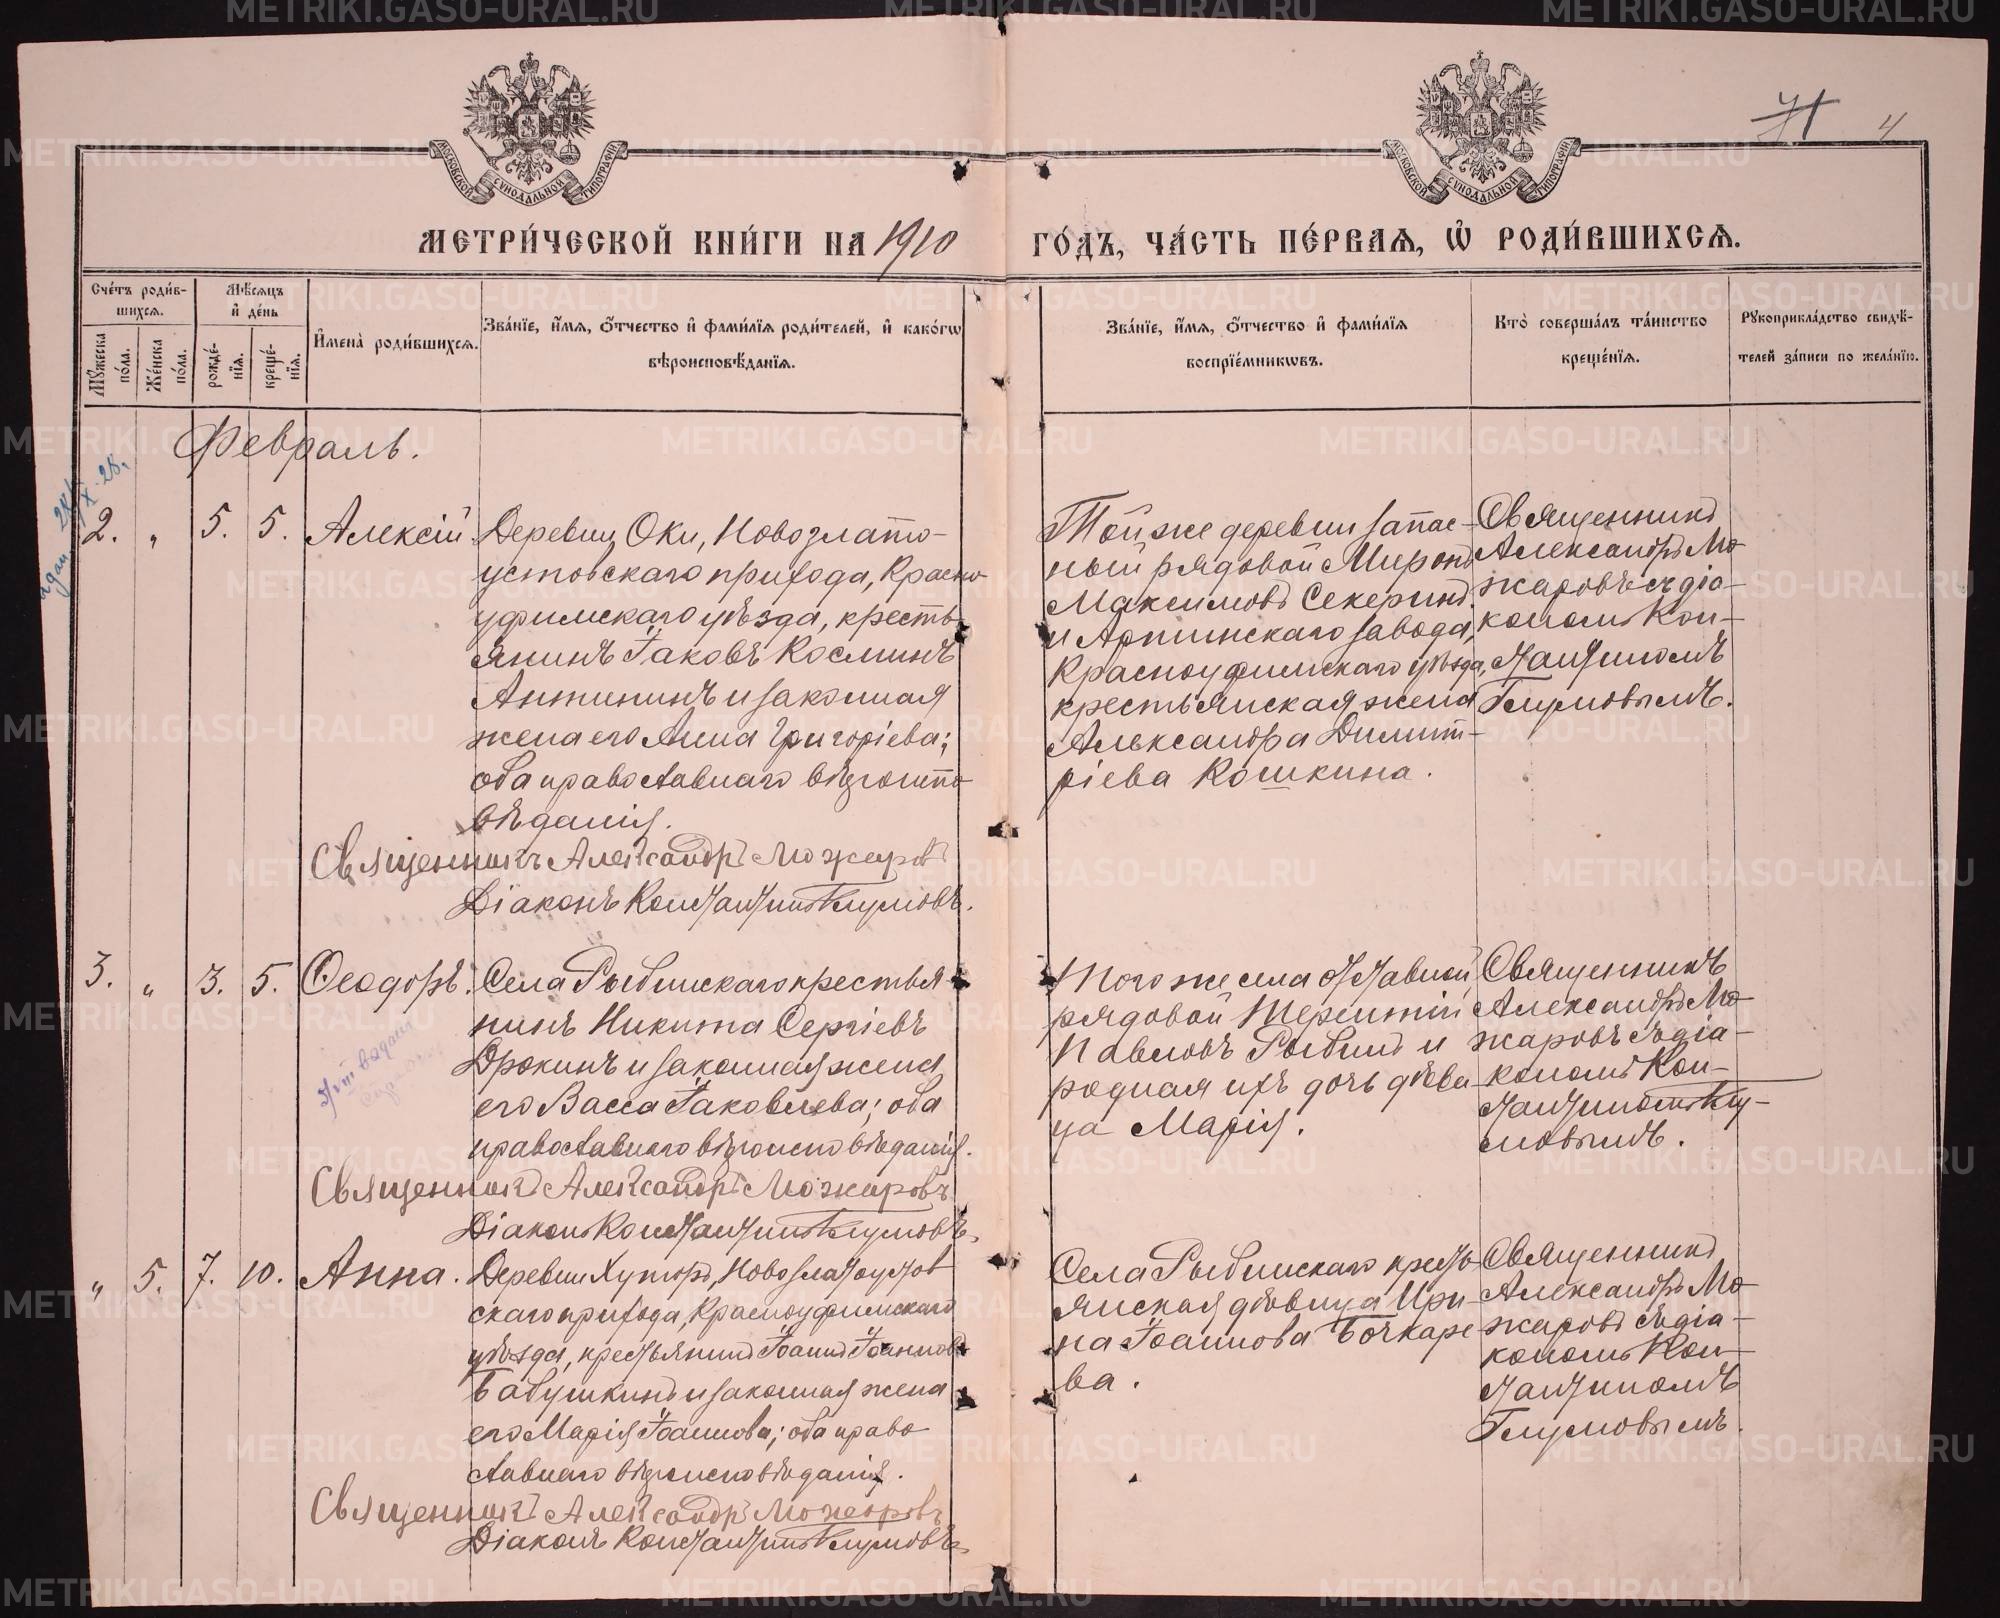 МЕТРИ́ЧЕСКОЙ КНИ́ГИ НА 1910 ГО́ДЪ, ЧА́СТЬ ПЕ́РВАЯ, Ѡ РОДИ́ВШИХСЯ.
4
МОСКОВСКОЙ СѴНОДАЛЬНОЙ ТИПОГРАФІИ
МОСКОВСКОЙ СѴНОДАЛЬНОЙ ТИПОГРАФІИ
Сче́тъ роди́в-
шихся.
Мѣсяцъ
и де́нь
Му́жеска
по́ла.
Же́нска
по́ла.
рожде́-
нія.
креще́-
нія.
Имена̀ роди́вшихся.
Зва́ніе, и́мя, ѻ́тчество и фами́лія роди́телей, и како́гѡ
вѣроисповѣ́данія.
Зва́ніе, и́мя, ѻ́тчество и фами́лія
воспріе́мникѡвъ.
Кто̀ соверша́лъ та́инство
креще́нія.
Рукоприкла́дство свидѣ́-
телей за́писи по жела́нію.
Февраль.
2. „ 5. 5. Алексій
Деревни Оки, Новозлато-
устовскаго прихода, Красно-
уфимскаго уѣзда, кресть-
янинъ Іаковъ Косминъ
Антипинъ и законная
жена его Анна Григоріева;
оба православнаго вѣроиспо-
вѣданія.
Священникъ Александръ Можаровъ
Діаконъ Константинъ Глумовъ.
Той же деревни запас-
ный рядовой Миронъ
Максимовъ Секеринъ
и Артинскаго завода,
Красноуфимскаго уѣзда,
крестьянская жена
Александра Димит-
ріева Кошкина.
Священникъ
Александръ Мо-
жаровъ съ діа-
кономъ Кон-
стантиномъ
Глумовымъ.
3. „ 3. 5. Ѳеодоръ.
Села Рыбинскаго крестья-
нинъ Никита Сергіевъ
Дрокинъ и законная жена
его Васса Іаковлева; оба
православнаго вѣроисповѣданія.
Священникъ Александръ Можаровъ
Діаконъ Константинъ Глумовъ.
Того же села отставной
рядовой Терентій
Павловъ Рыбинъ и
родная ихъ дочь дѣви-
ца Марія.
Священникъ
Александръ Мо-
жаровъ съ діа-
кономъ Кон-
стантиномъ Глу-
мовымъ.
„ 5. 7. 10. Анна.
Деревни Хуторъ, Новозлатоустов-
скаго прихода, Красноуфимскаго
уѣзда, крестьянинъ Іоаннъ Іоанновъ
Бабушкинъ и законная жена
его Марія Іоаннова; оба право-
славнаго вѣроисповѣданія.
Священникъ Александръ Можаровъ
Діаконъ Константинъ Глумовъ.
Села Рыбинскаго кресть-
янская дѣвица Ири-
на Іоаннова Бочкаре-
ва.
Священникъ
Александръ Мо-
жаровъ съ діа-
кономъ Кон-
стантиномъ
Глумовымъ.
METRIKI.GASO-URAL.RU